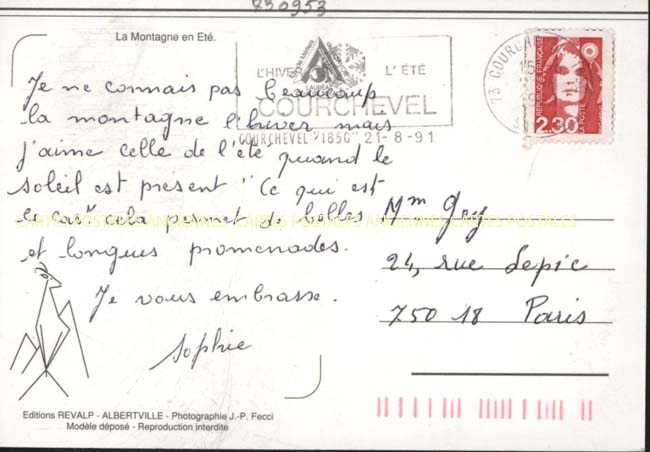 730953
La Montagne en Eté.
L'HIVER L'ÉTÉ
COURCHEVEL
COURCHEVEL "1850" 21-8-91
73 COURCH
RÉPUBLIQUE FRANÇAISE
2.30
LA POSTE
Je ne connais pas beaucoup
la montagne l'hiver mais
j'aime celle de l'été quand le
soleil est présent "Ce qui est
le cas" cela permet de belles
et longues promenades.
Je vous embrasse.
Sophie
Mm Gry
24, rue Lepic
75018 Paris
CARTES POSTALES ANCIENNES CARTES POSTALES ANCIENNES CARTES POSTALES
Editions REVALP - ALBERTVILLE - Photographie J.-P. Fecci
Modèle déposé - Reproduction interdite